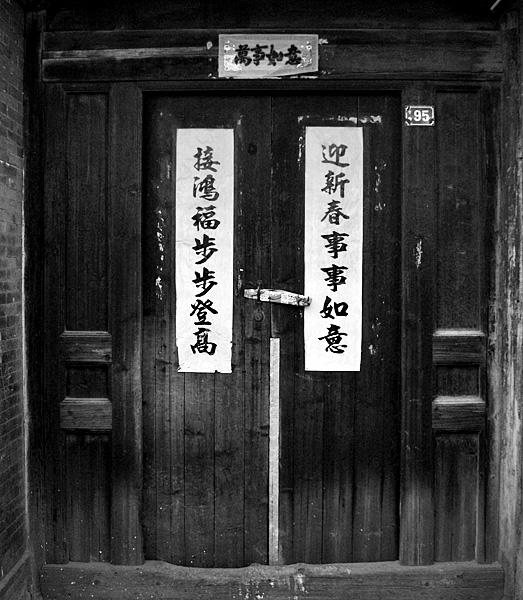 萬事如意
95
迎新春事事如意
接鴻福步步登高